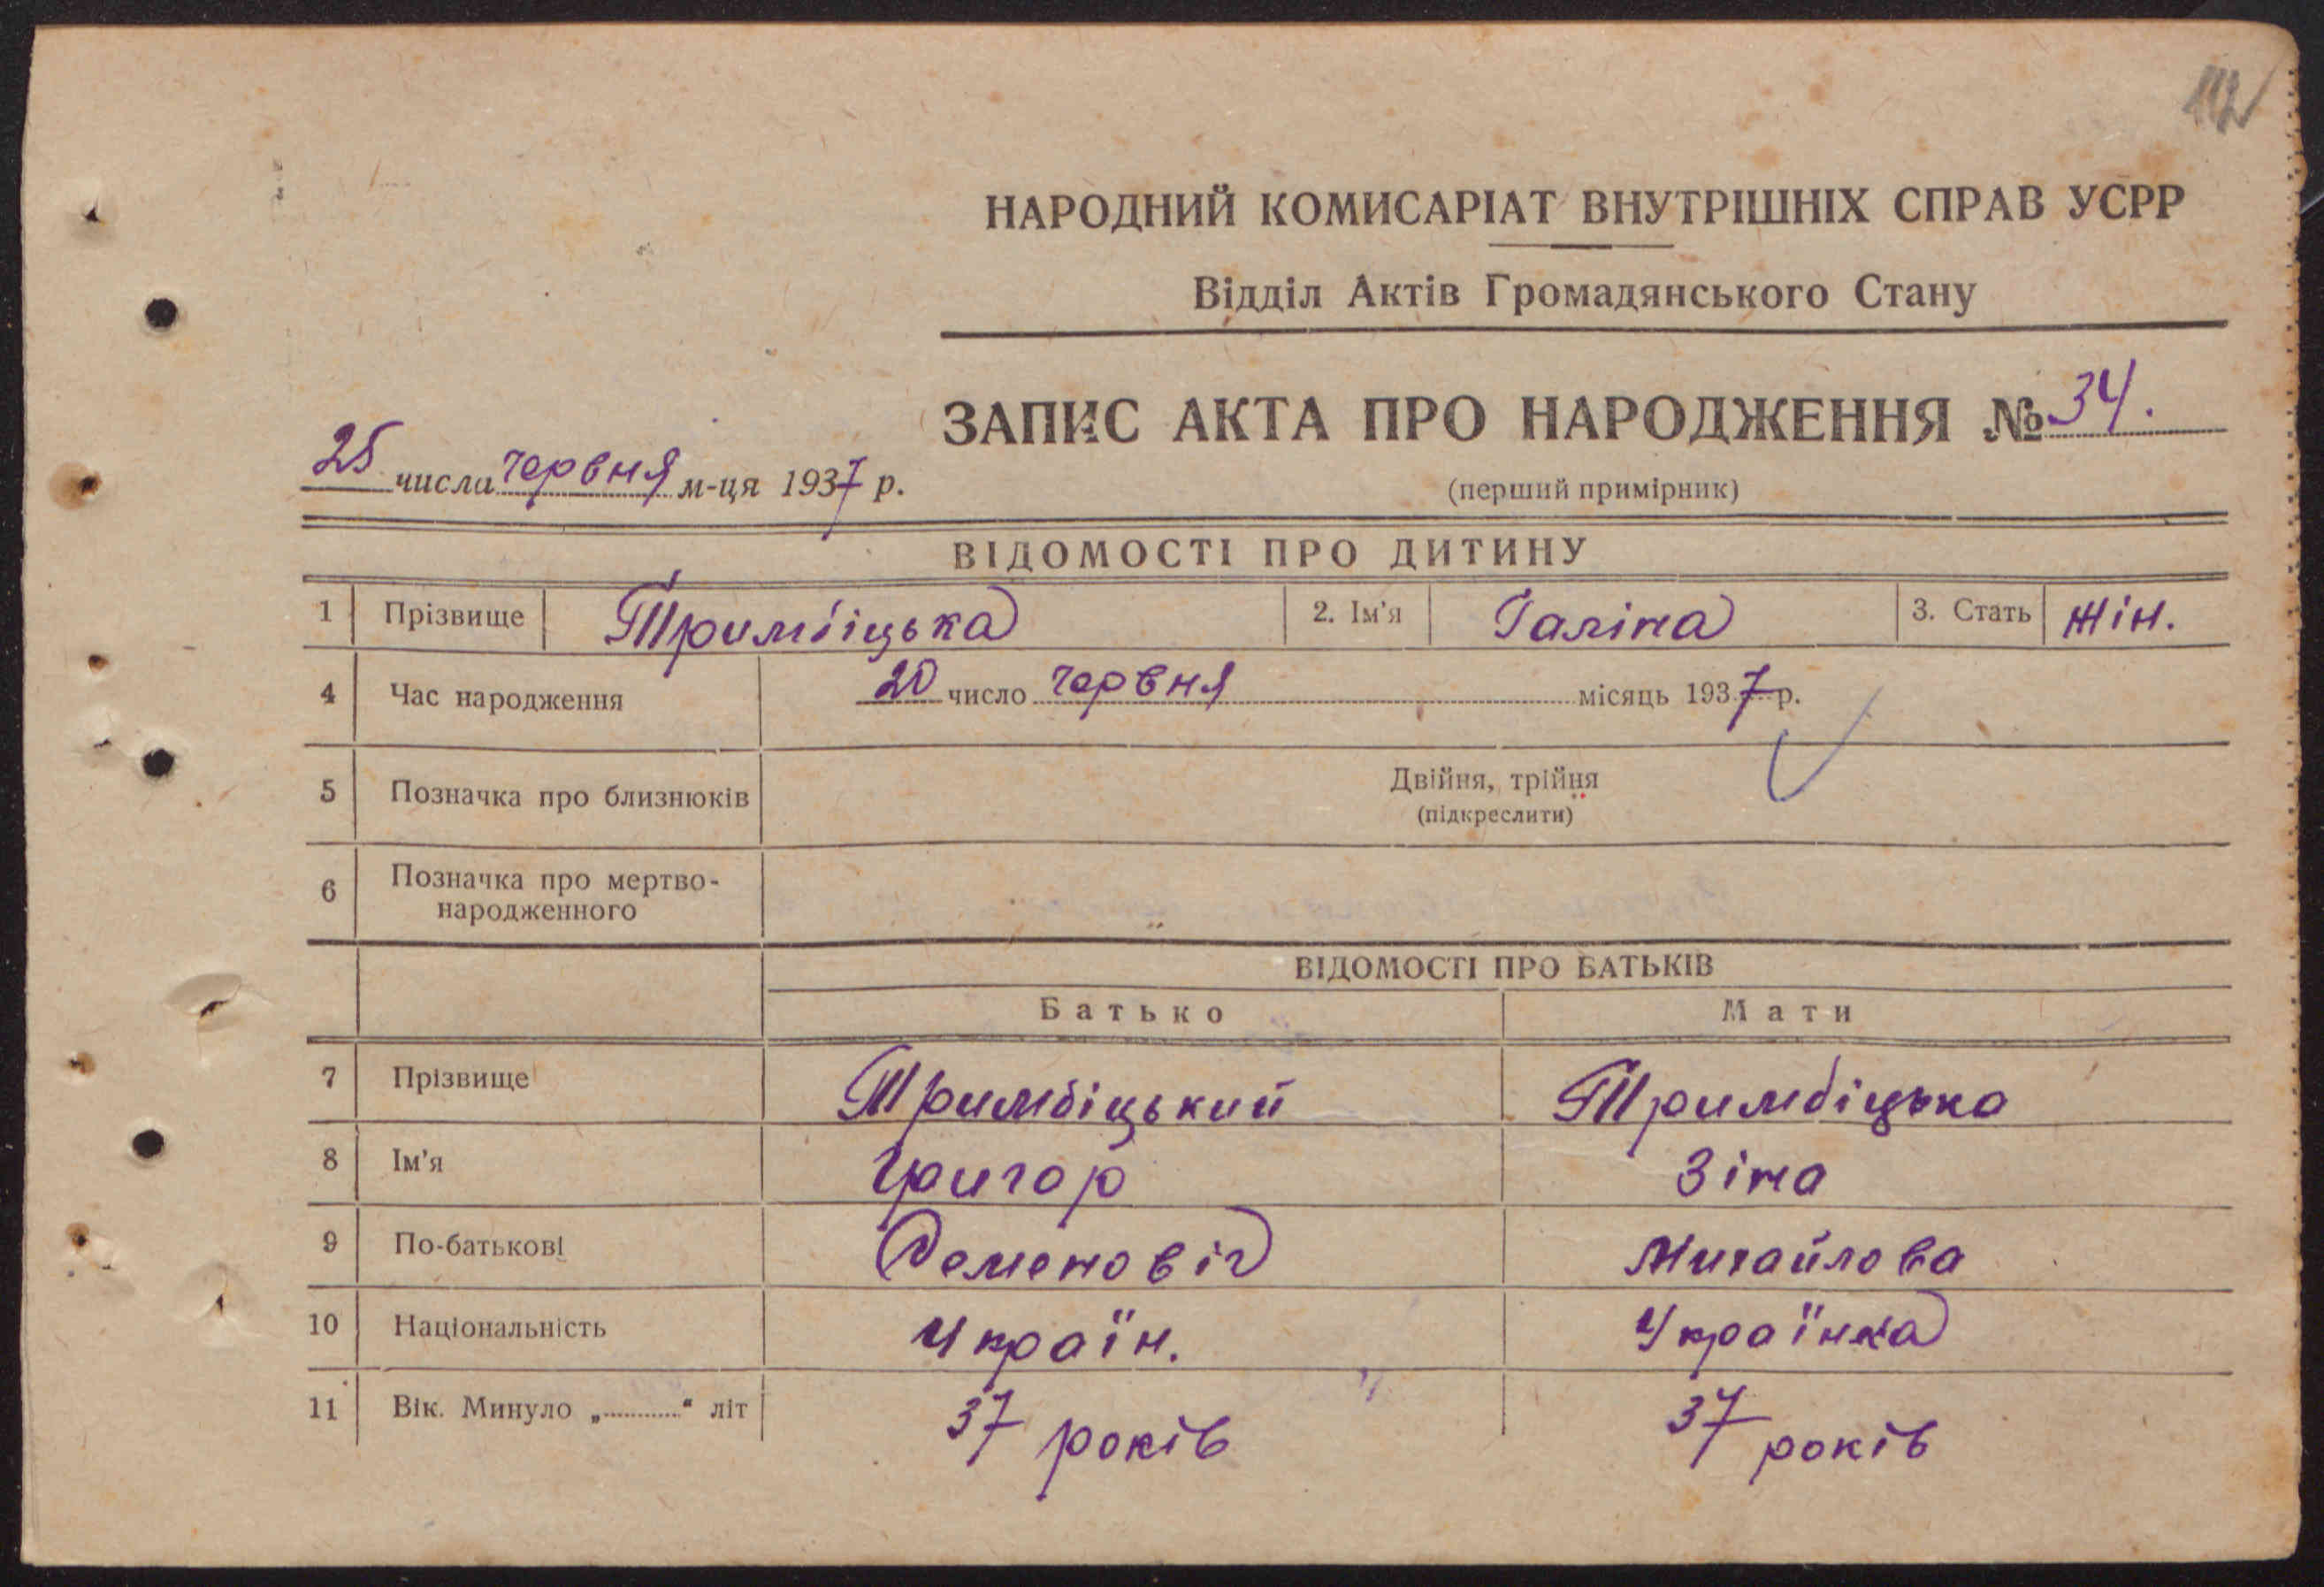 112
НАРОДНИЙ КОМИСАРІАТ ВНУТРІШНІХ СПРАВ УСРР
Відділ Актів Громадянського Стану
ЗАПИС АКТА ПРО НАРОДЖЕННЯ № 34.
25 числа червня м-ця 1937 р.
(перший примірник)
ВІДОМОСТІ ПРО ДИТИНУ
1 Прізвище Тримбіцька 2. Ім'я Галіна 3. Стать жін.
4 Час народження 20 число червня місяць 1937 р.
5 Позначка про близнюків Двійня, трійня
(підкреслити)
6 Позначка про мертво-
народженного
ВІДОМОСТІ ПРО БАТЬКІВ
Батько Мати
7 Прізвище Тримбіцький Тримбіцька
8 Ім'я Григор Зіна
9 По-батькові Семенович Михайлова
10 Національність Україн. Українка
11 Вік. Минуло „ “ літ 37 років 37 років